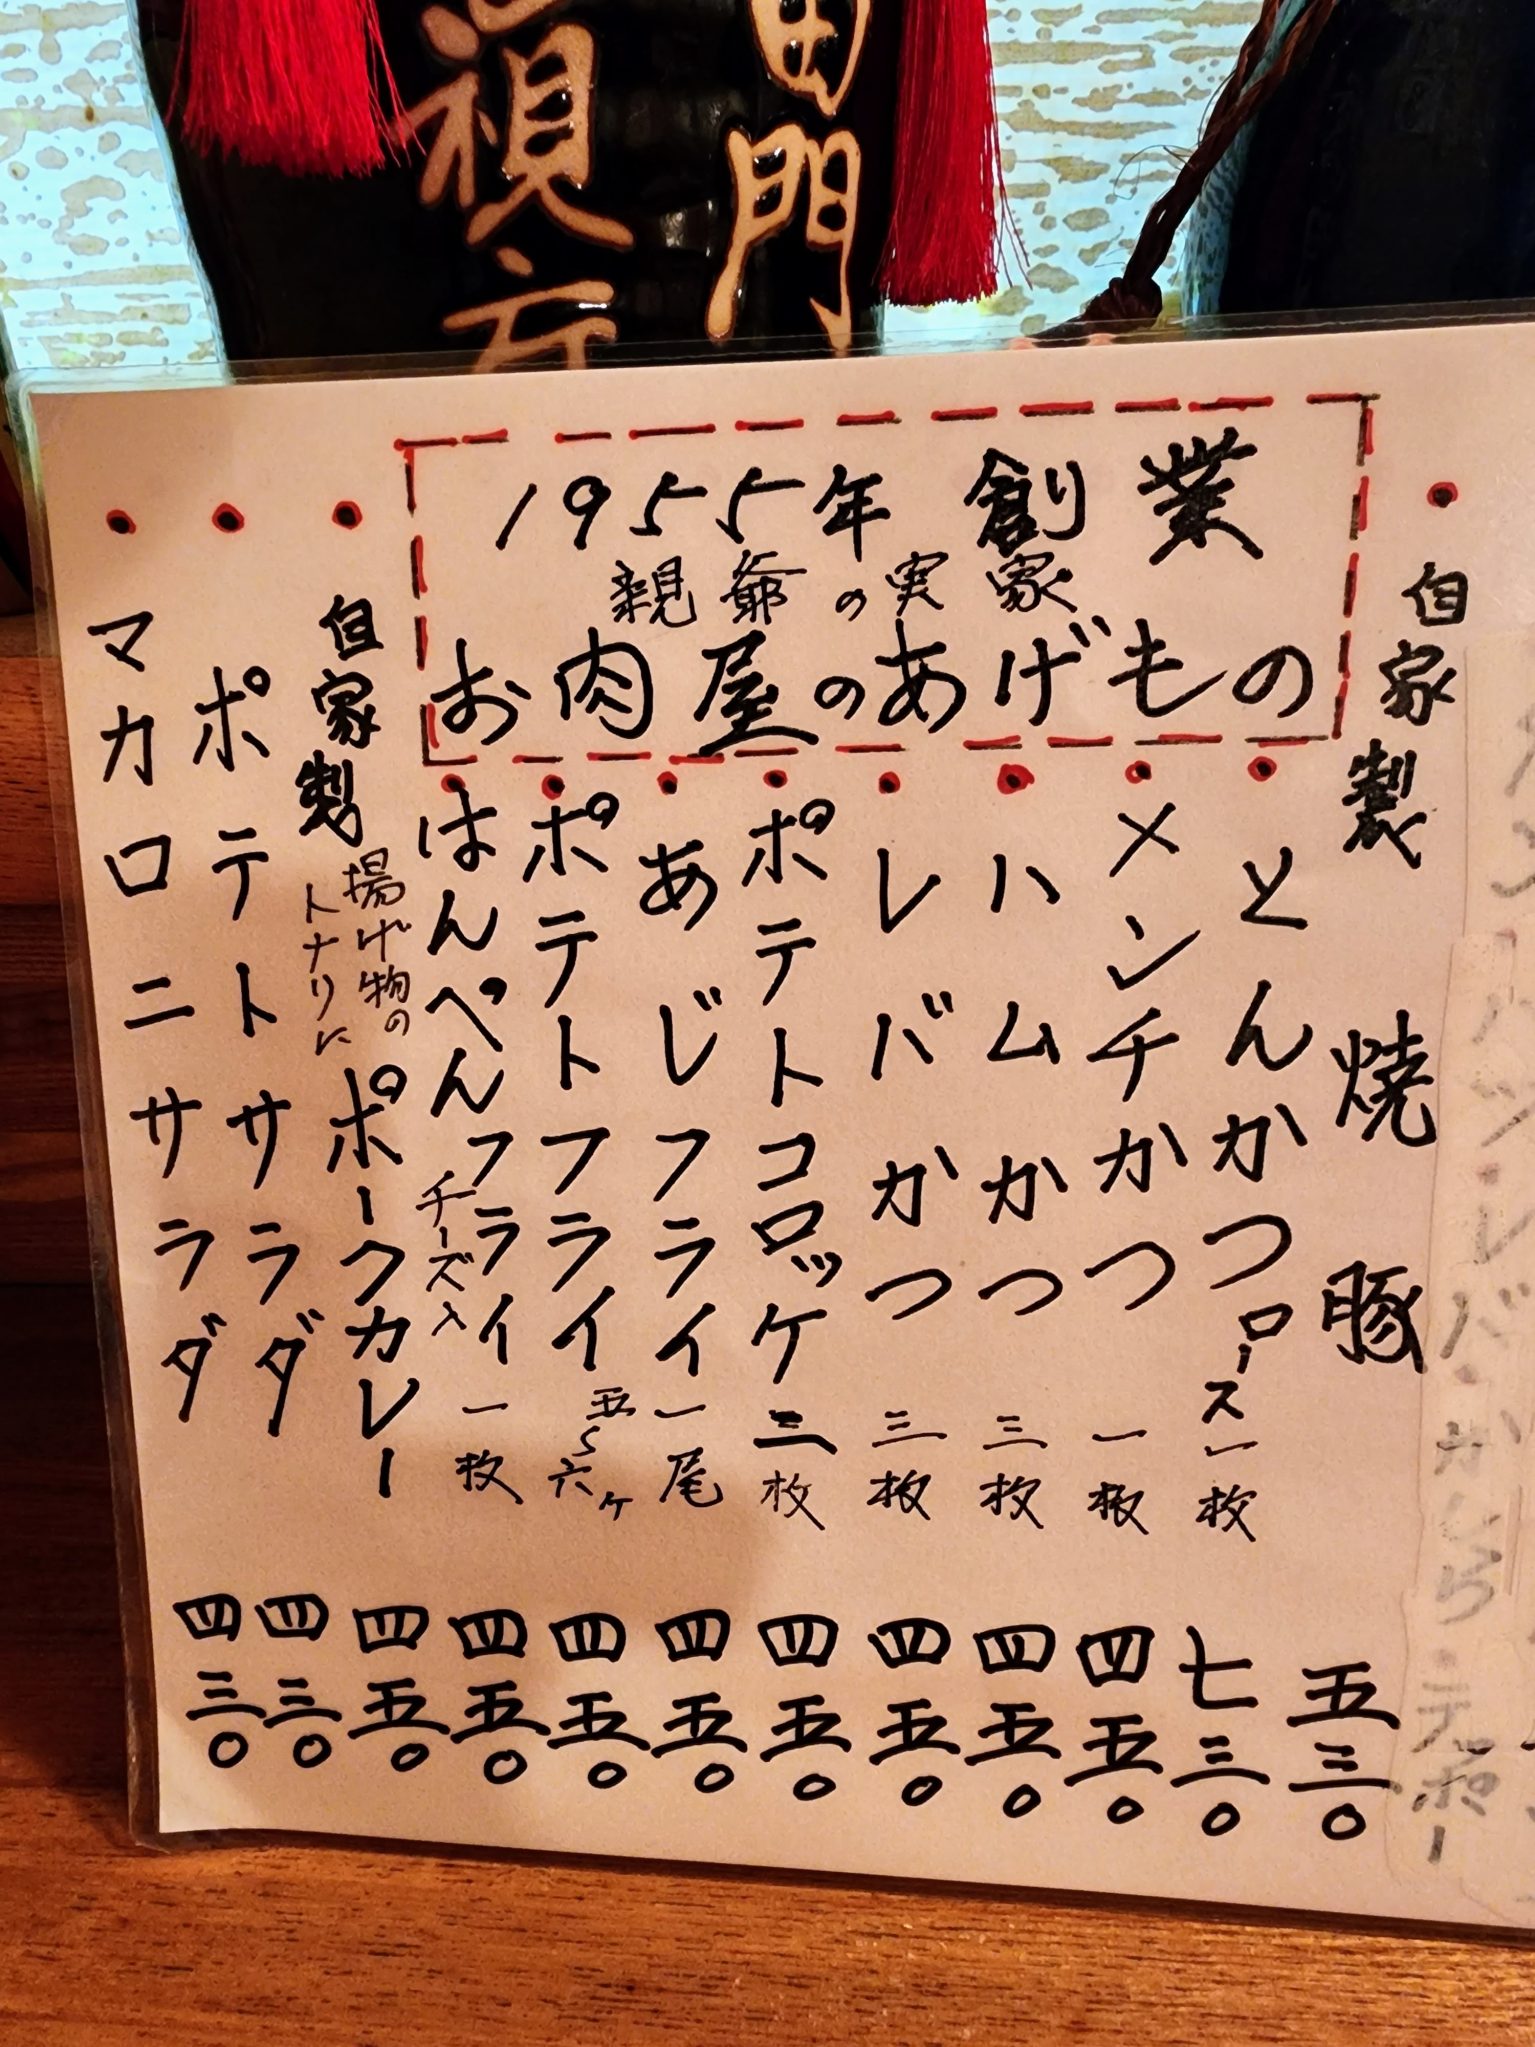 田門
禎
1955年 創業
親爺の実家
お肉屋のあげもの
自家製 焼豚 五三〇
とんかつ ロース一枚 七三〇
メンチかつ 一枚 四五〇
ハムかつ 三枚 四五〇
レバかつ 三枚 四五〇
ポテトコロッケ 二枚 四五〇
あじフライ 一尾 四五〇
ポテトフライ 五〜六ヶ 四五〇
はんぺんフライ 一枚 四五〇
チーズ入
自家製
揚げ物の
トナリに
ポークカレー 四五〇
ポテトサラダ 四三〇
マカロニサラダ 四三〇